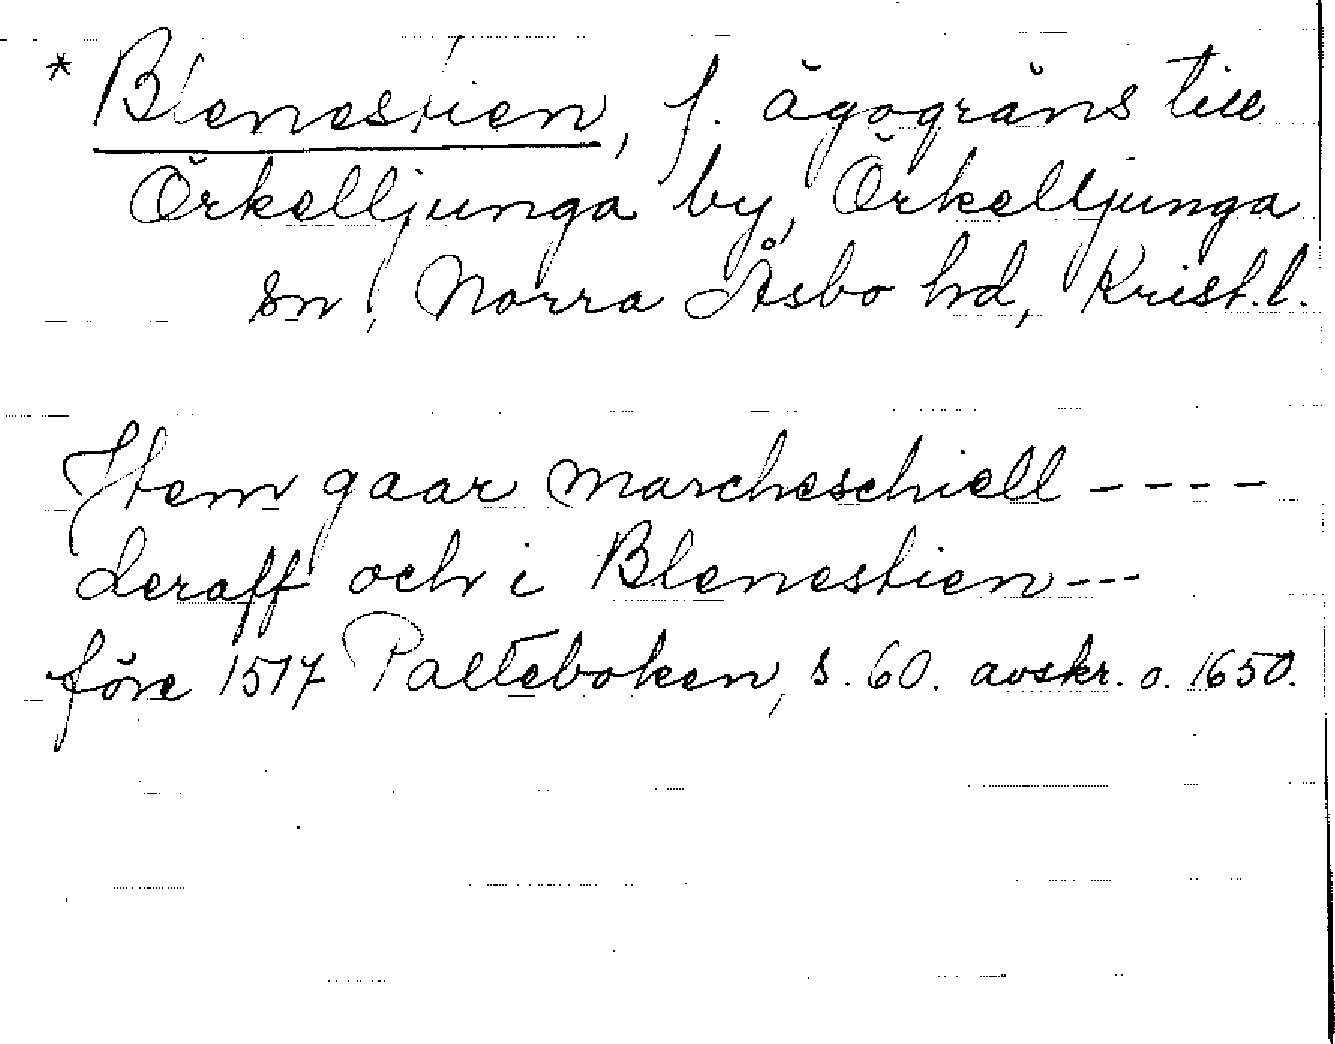 * Blenestien, f. ägogräns till
Örkelljunga by, Örkelljunga
sn, Norra Åsbo hd, Krist.l.
Item gaar marcheschiell ----
deraff och i Blenestien---
före 1517 Palteboken, s. 60. avskr. o. 1650.